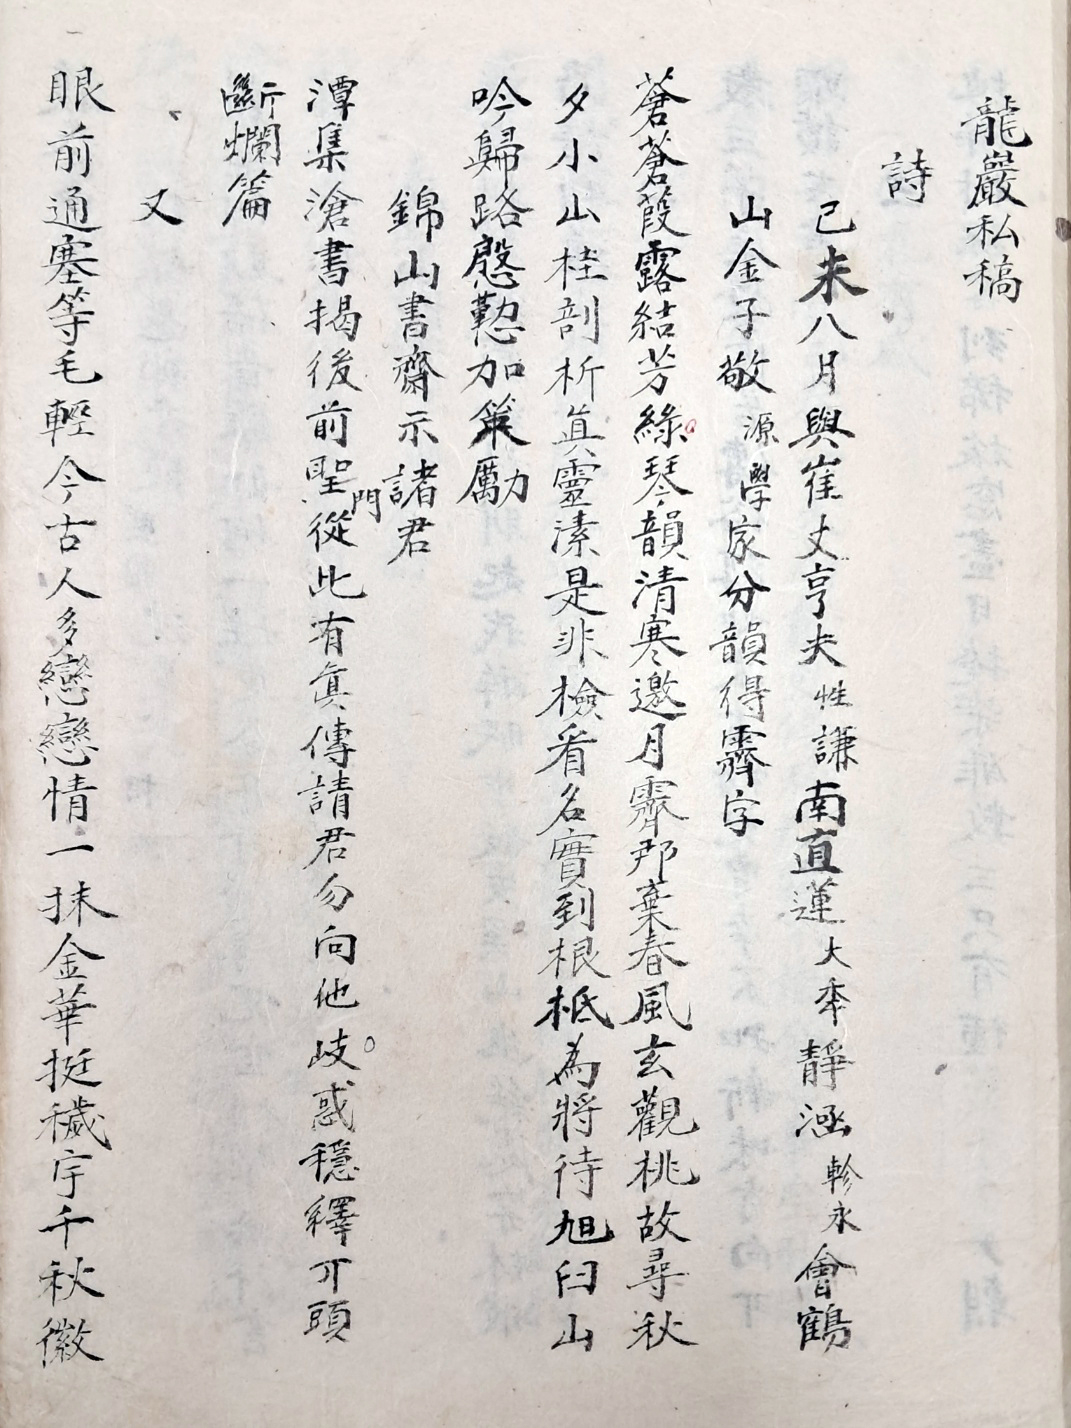 龍巖私稿
詩
己未八月與崔丈亨夫性謙南直蓮大秊靜涵軫永會鶴
山金子敬源學家分韻得霽字
蒼蒼葭露結芳綠琴韻清寒邀月霽那棄春風玄觀桃故尋秋
夕小山桂剖析眞靈溸是非檢看名實到根柢為將待旭臼山
吟歸路慇懃加策勵
錦山書齋示諸君
潭集滄書揭後前聖門從比有眞傳請君勿向他歧惑穩釋丌頭
斷爛篇
又
眼前通塞等毛輕今古人多戀戀情一抹金華挺穢宇千秋徽